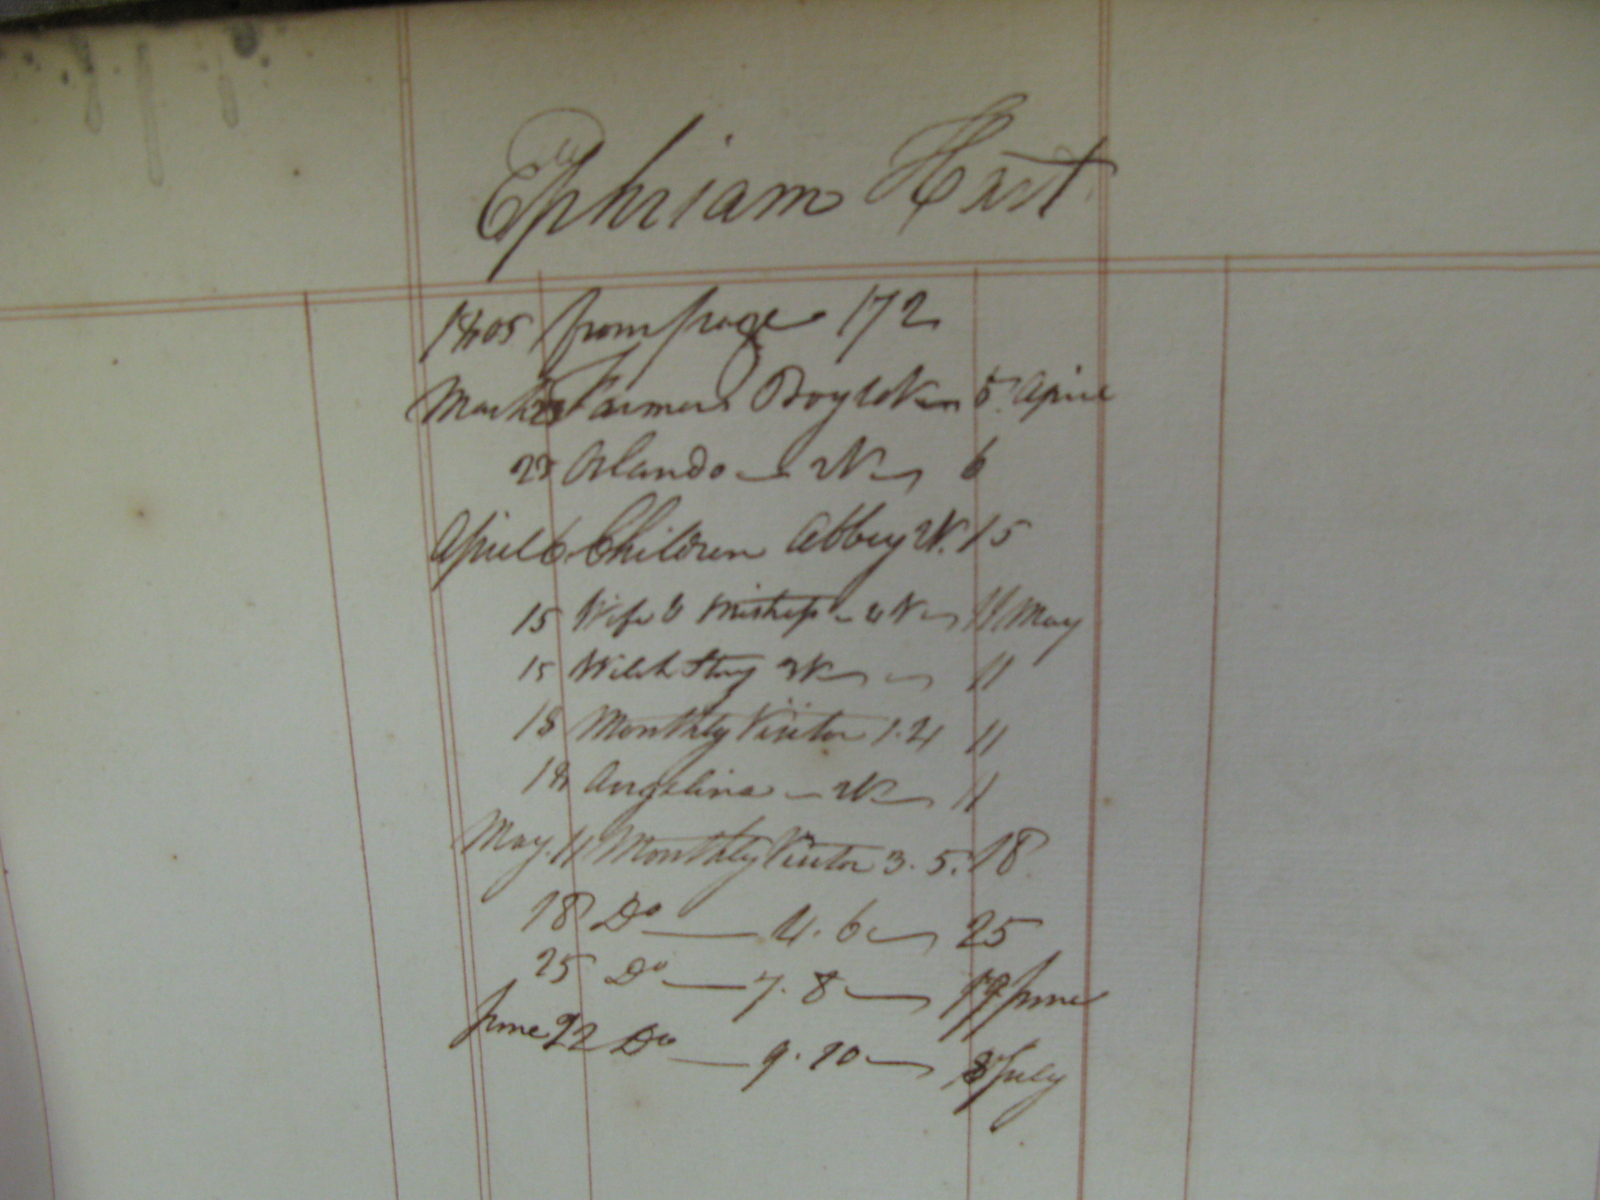 Ephriam Hart
1805 from page 172
March 23 Farmers Boy 5 April
23 Orlando W 6
April 6 Children Abbey W. 15
15 Wife & Mistress 4 W 11 May
15 Welch Story W 11
18 Monthly Visitor 1.2 11
18 Angelina W 11
May 11 Monthly Visitor 3.5. 18
18 Do 4.6 25
25 Do 7.8 June
June 22 Do 9.10 8 July